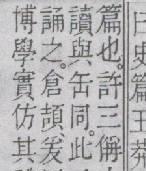 史篇王莽
篇也。許三偁
讀與缶同。此
誦之。倉頡、爰
博學實仿其